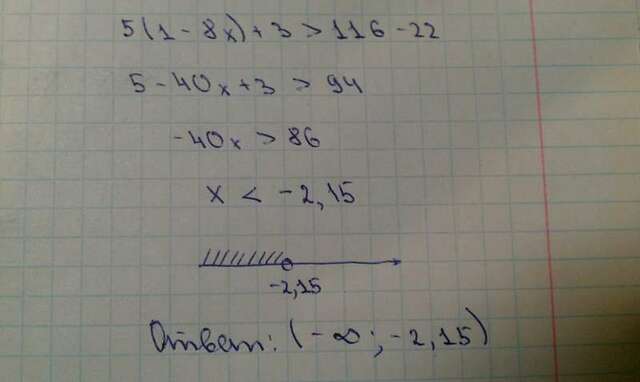 5(1 - 8x) + 3 > 116 - 22
5 - 40x + 3 > 94
-40x > 86
x < -2,15
-2,15
Ответ: (-∞; -2,15)